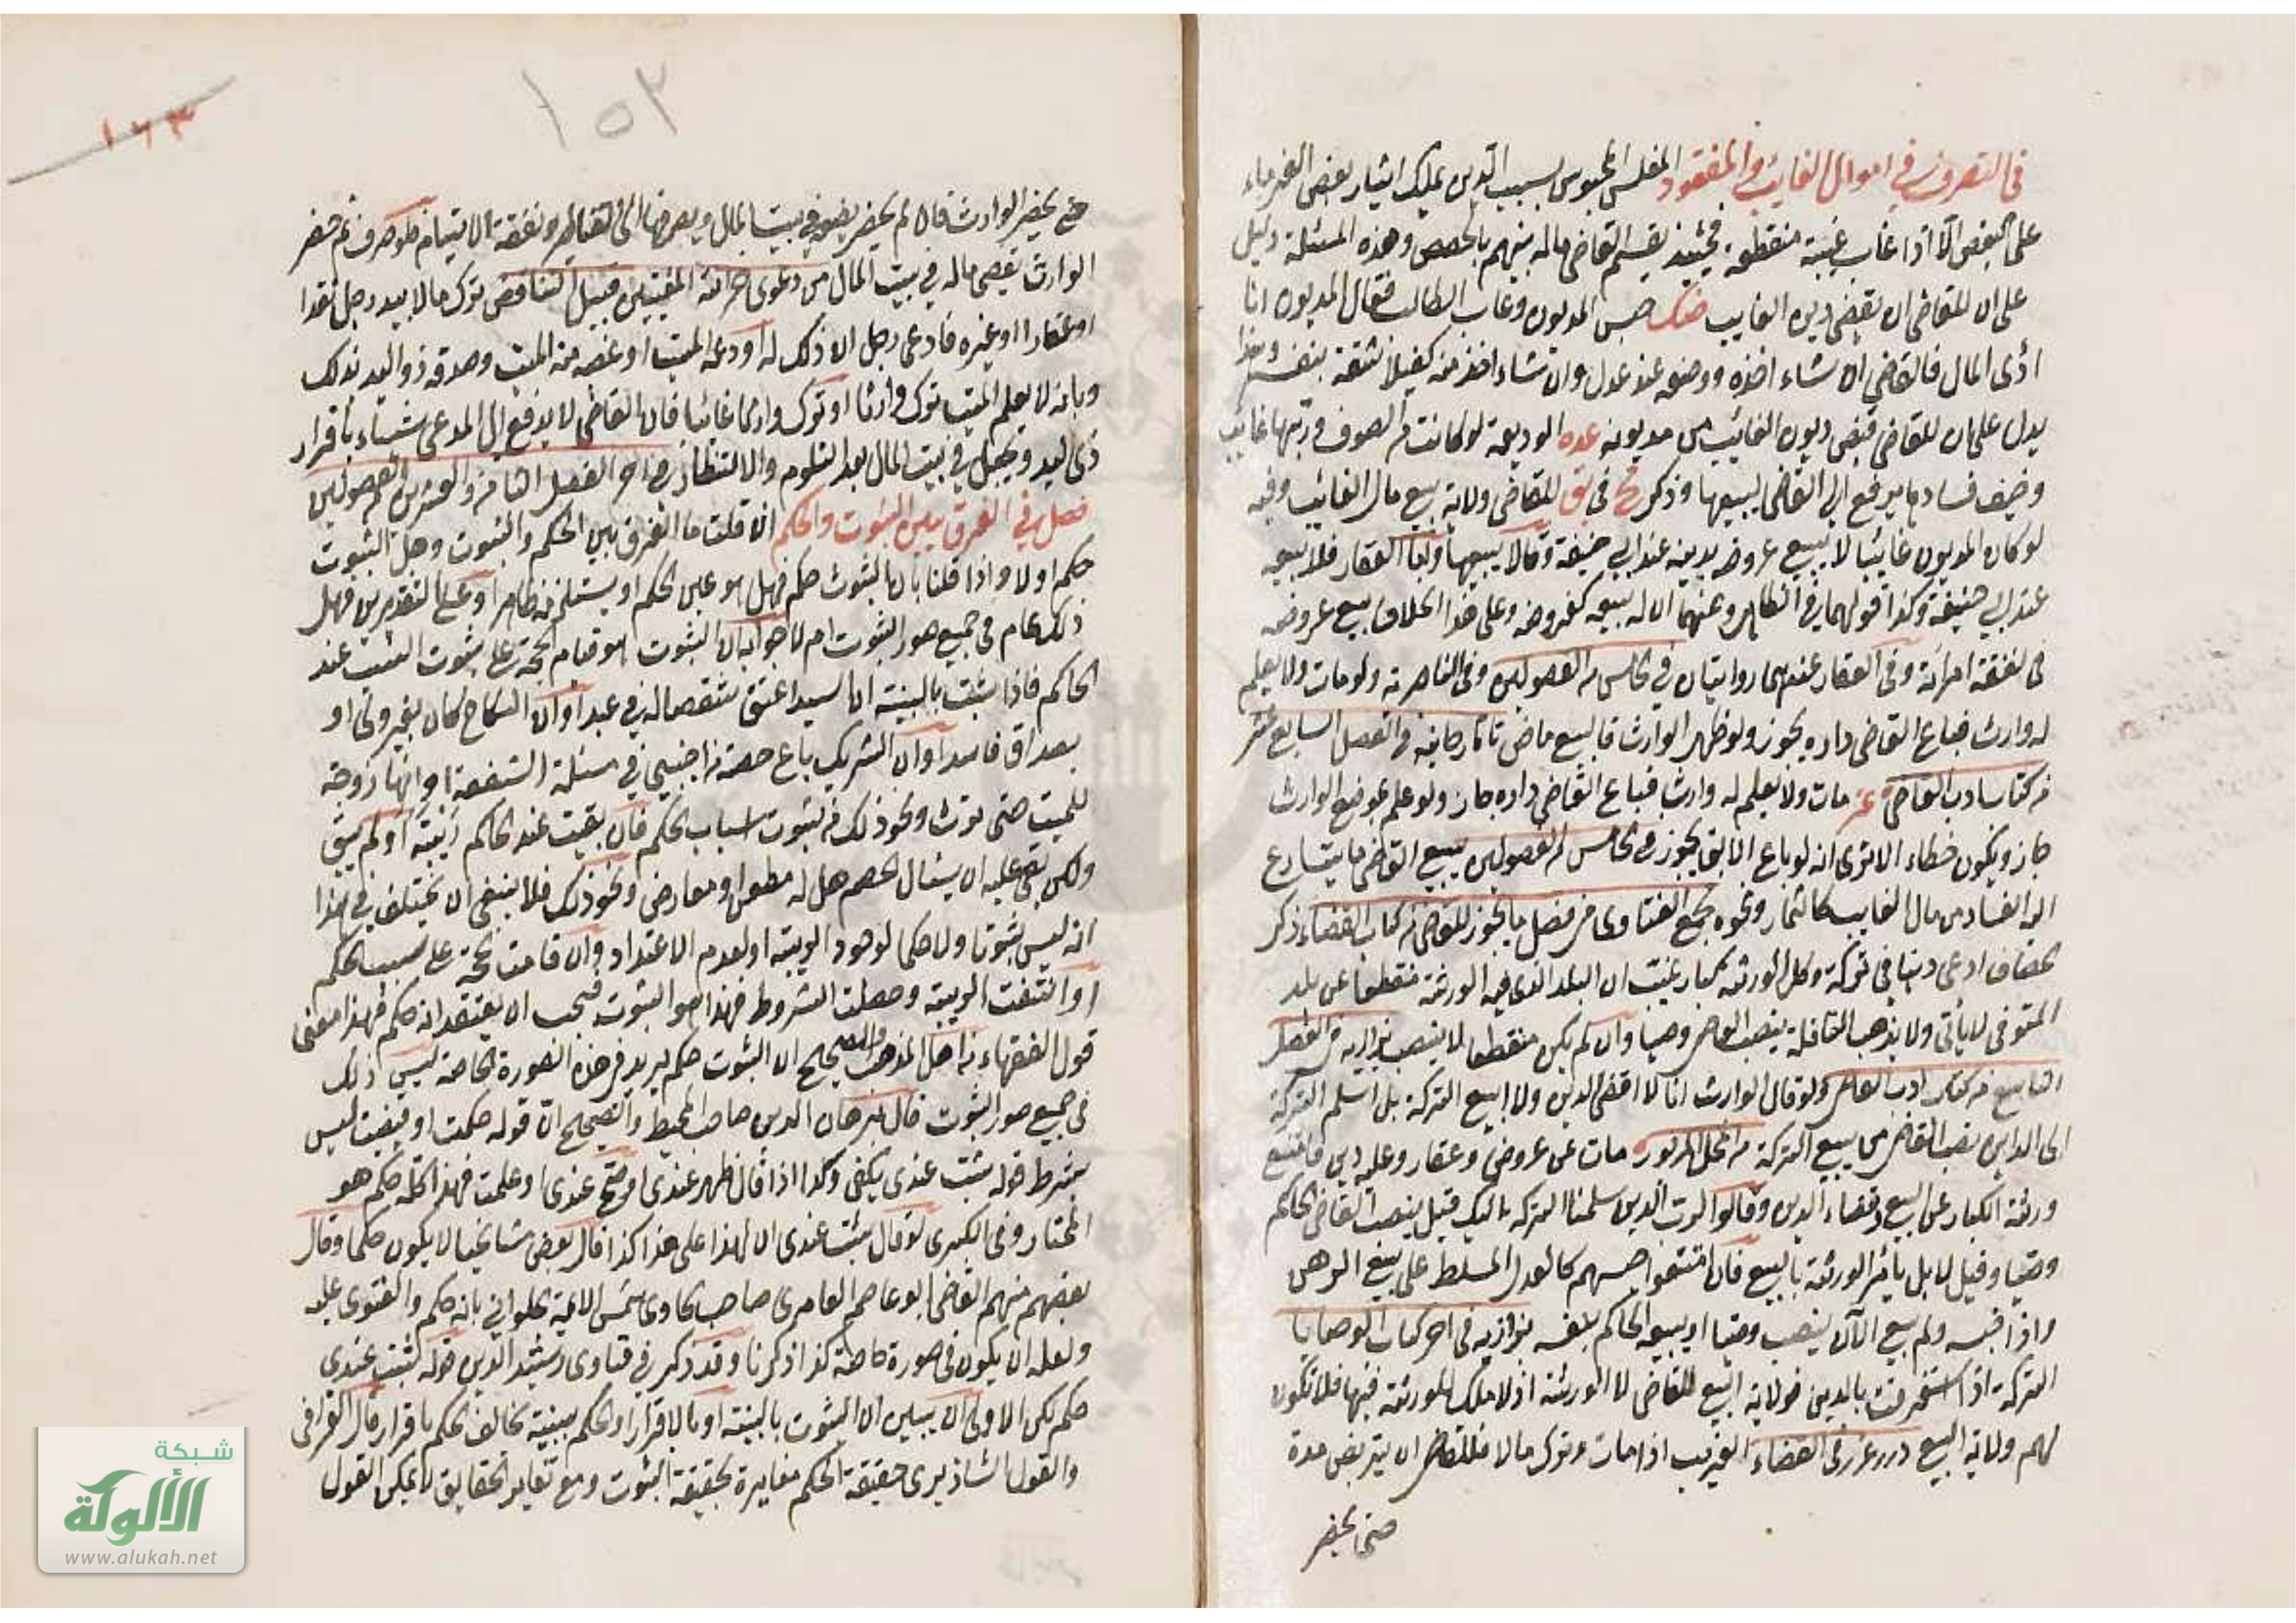 في التصرف في اموال الغايب والمفقود المفلس المحبوس بسبب الدين يملك ايثار بعض الغرماء
على البعض الا اذا غاب غيبة منقطعة فحينئذ يقسم القاضي ماله بينهم بالحصص وهذه المسئلة دليل
على ان للقاضي ان يقضي دين الغايب ضك حبس المديون وغاب الطالب فقال المديون انا
اؤدى المال فالقاضي ان شاء اخذه ووضعه عند عدل وان شاء اخذ منه كفيلا ثقة بنفسه وهذا
يدل على ان للقاضي قبض ديون الغائب من مديونه عده الوديعة لو كانت من الصوف وربها غايب
وخيف فسادها يرفع الى القاضي ليبيعها وذكر في للقاضي ولاية بيع مال الغائب وفيه
لو كان المديون غائبا لا يبيع عروضه بدينه عند ابي حنيفة وقالا يبيعها واما العقار فلا يبيعه
عند ابي حنيفة وكذا قولهما في الظاهر وعنهما ان له بيعه كعروضه وعلى هذا الخلاف بيع عروضه
في نفقة امراته وفي العقار عندهما روايتان في الخامس من الفصولين وفي الناصرية ولو مات ولا يعلم
له وارث فباع القاضي داره يجوز ولو ظهر الوارث فالبيع ماض تاتارخانيه في الفصل السابع عشر
من كتاب ادب القاضي مات ولا يعلم له وارث فباع القاضي داره جاز ولو علم بموضع الوارث
جاز ويكون خطاء الا ترى انه لو باع الابق يجوز في الخامس من الفصولين يبيع القاضي ما يتسارع
اليه الفساد من مال الغايب كالثمار ونحوه مجمع الفتاوى من فصل ما يجوز للقاضي من كتاب القضاء ذكر
الخصاف ادعى دينا في تركة وكل الورثة كبار غيب ان البلد الذي فيه الورثة منقطعا عن بلد
المتوفى لا ياتي ولا يذهب القافلة ينصب القاضي وصيا وان لم يكن منقطعا لا ينصب بزازيه في الفصل
التاسع من كتاب ادب القاضي ولو قال الوارث انا لا اقضي الدين ولا ابيع التركة بل اسلم التركة
الى الداين نصب القاضي من يبيع التركة من المحل المزبور مات عن عروض وعقار وعليه دين فامتنع
ورثته الكبار عن البيع وقضاء الدين وقالوا لرب الدين سلمنا التركة اليك قيل ينصب القاضي الحاكم
وصيا وقيل لا بل يأمر الورثة بالبيع فان امتنعوا حبسهم كالعدل المسلط على بيع الرهن
واذا حبسه ولم يبع الآن ينصب وصيا او يبيعه الحاكم بنفسه بزازيه في اخر كتاب الوصايا
التركة اذا استغرقت بالدين فولاية البيع للقاضي لا الورثة اذ لا ملك للورثة فيها فلا تكون
لهم ولاية البيع درر غرر في القضاء الغريب اذا مات وترك مالا فللقاضي ان يتربص مدة
حتى يحضر
١٥٢
١٦٣
حتى يحضر الوارث فان لم يحضر يضعه في بيت المال ويصرفها الى القناطر ونفقة الايتام فلو صرف ثم حضر
الوارث يقضي ماله في بيت المال من دعوى خزانة المفتيين قبيل التناقض ترك مالا بيد رجل نقدا
او عقارا او غيره فادعى رجل ان ذلك له اودعه الميت او غصبه منه الميت وصدقه ذو اليد بذلك
وبانه لا يعلم الميت ترك وارثا او ترك وارثا غائبا فان القاضي لا يدفع الى المدعي شيئا باقرار
ذي اليد ويجعل في بيت المال بعد التلوم والانتظار من اخر الفصل الثامن والعشرين من الفصولين
فصل في الفرق بين الثبوت والحكم ان قلت ما الفرق بين الحكم والثبوت وهل الثبوت
حكم او لا واذا قلنا بان الثبوت حكم فهل هو عين الحكم او يستلزمه ظاهرا وعلى التقديرين فهل
ذلك عام في جميع صور الثبوت ام لا جوابه ان الثبوت هو قيام الحجة على ثبوت السبب عند
الحاكم فاذا ثبت بالبينة ان سيدا اعتق شقصا له في عبد او ان النكاح كان بغير ولى او
بصداق فاسد او ان الشريك باع حصته من اجنبي في مسئلة الشفعة او انها زوجة
للميت حتى ترث ونحو ذلك من ثبوت اسباب الحكم فان بقيت عند الحاكم ريبة او لم يبق
ولكن بقي عليه ان يسئال الخصم هل له مطعن او معارض ونحو ذلك فلا ينبغي ان يختلف في هذا
انه ليس بثبوت ولا حكم لوجود الريبة او لعدم الاعتداد وان قامت الحجة على سبب الحكم
او انتفت الريبة وحصلت الشروط فهذا هو الثبوت فيجب ان يعتقد انه حكم فهذا معنى
قول الفقهاء من اهل المذهب والصحيح ان الثبوت حكم يريد في هذه الصورة الخاصة ليس ذلك
في جميع صور الثبوت قال برهان الدين صاحب المحيط والصحيح ان قوله حكمت او قضيت ليس
بشرط قوله ثبت عندي يكفي وكذا اذا قال ظهر عندي او صح عندي او علمت فهذا كله حكم هو
المختار وفي الكبرى لو قال ثبت عندي ان لهذا على هذا كذا قال بعض مشايخنا لا يكون حكما وقال
بعضهم منهم القاضي ابو عاصم العامري صاحب الحاوي شمس الائمة الحلواني بانه حكم والفتوى عليه
ولعله ان يكون في صورة خاصة كذا ذكرنا وقد ذكر في فتاوى رشيد الدين قوله ثبت عندي
حكم لكن الاولى ان يبين ان الثبوت بالبينة او بالاقرار والحكم ببينة يخالف الحكم باقرار قال القرافي
والقول الشاذ يرى حقيقة الحكم مغايرة لحقيقة الثبوت ومع تغاير الحقايق لا يمكن القول
شبكة
الألوكة
www.alukah.net